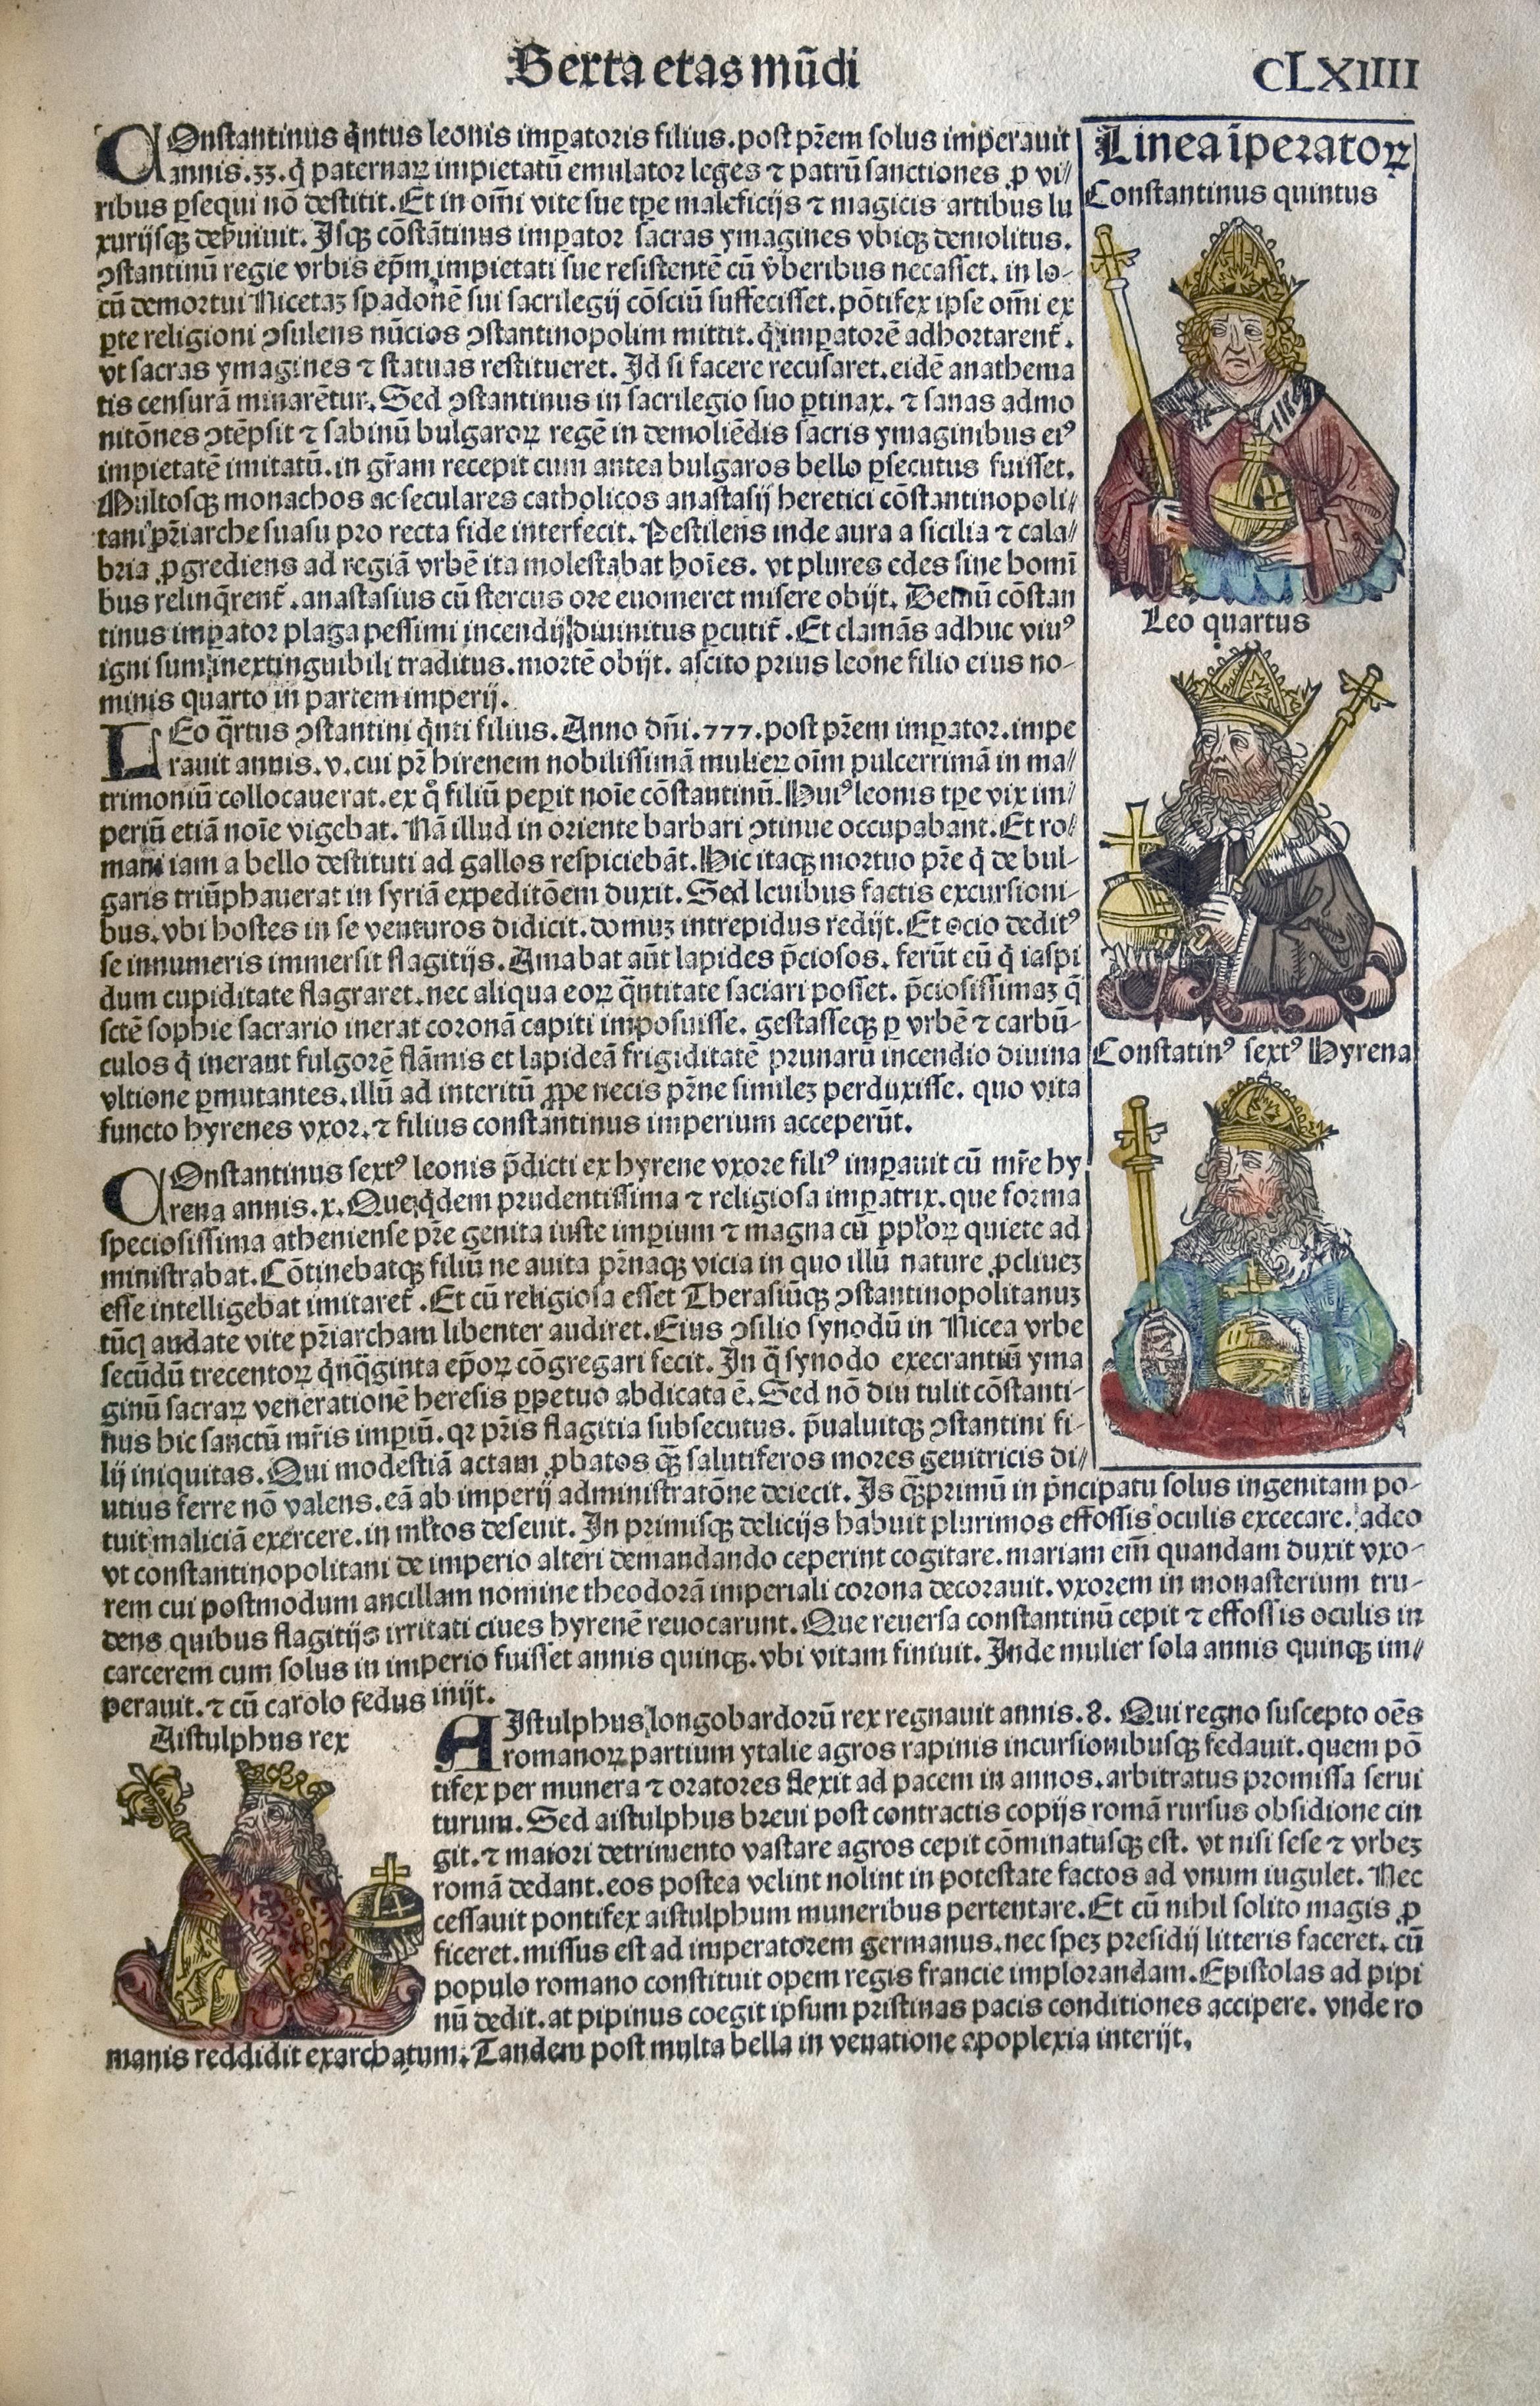 Sexta etas mũdi
CLXIIII
COnstantinus q̃ntus leonis imꝑatoris filius. post pr̃em solus imperauit
annis .33. q̇ paternaꝝ impietatũ emulator leges ⁊ patrũ sanctiones ꝓ vi⸗
ribus ꝑsequi nõ destitit. Et in om̃i vite sue tꝑe maleficijs ⁊ magicis artibus lu
xurijsqꝫ deẜuiuit. Isqꝫ cõstãtinus imꝑator sacras ymagines vbiqꝫ demolitus.
ↄstantinũ regie vrbis ep̃m impietati sue resistentẽ cũ v̓beribus necasset. in lo-
cũ demortui Nicetaꝫ spadonẽ sui sacrilegij cõsciũ suffecisset. põtifex ipse om̃i ex
ꝑte religioni ↄsulens nũcios ↄstantinopolim mittit. q̇ imꝑatorẽ adhortarent̃.
vt sacras ymagines ⁊ statuas restitueret. Id si facere recusaret. eidẽ anathema
tis censurã minarẽtur. Sed ↄstantinus in sacrilegio suo ꝑtinax. ⁊ sanas admo
nitõnes ↄtẽpsit ⁊ sabinũ bulgaroꝝ regẽ in demoliẽdis sacris ymaginibus eiꝰ
impietatẽ imitatũ. in gr̃am recepit cum antea bulgaros bello ꝑsecutus fuisset.
Multosqꝫ monachos ac seculares catholicos anastasij heretici cõstantinopoli⸗
tani pr̃iarche suasu pro recta fide interfecit. Pestilens inde aura a sicilia ⁊ cala⸗
bria ꝓgrediens ad regiã vrbẽ ita molestabat hoĩes. vt plures edes sine homĩ
bus relinq̃rent̃. anastasius cũ stercus ore euomeret misere obijt. Demũ cõstan
tinus imꝑator plaga pessimi incendij diuinitus ꝑcutit̃. Et clamãs adhuc viuꝰ
igni sum inextinguibili traditus. mortẽ obijt. ascito prius leone filio eius no-
minis quarto in partem imperij.
LEo q̃rtus ↄstantini q̇nti filius. Anno dñi .777. post pr̃em imꝑator. impe
rauit annis .v. cui pr̃ hirenem nobilissimã mulieꝝ oĩm pulcerrimã in ma⸗
trimoniũ collocauerat. ex q̃ filiũ peꝑit noĩe cõstantinũ. Huiꝰ leonis tꝑe vix im⸗
periũ etiã noĩe vigebat. Nã illud in oriente barbari ↄtinue occupabant. Et ro⸗
mani iam a bello destituti ad gallos respiciebãt. Hic itaqꝫ mortuo pr̃e q̇ de bul-
garis triũphauerat in syriã expeditõem duxit. Sed leuibus factis excursioni-
bus. vbi hostes in se venturos didicit. domuꝫ intrepidus redijt. Et ocio deditꝰ
se innumeris immersit flagitijs. Amabat aũt lapides p̃ciosos. ferũt eũ q̇ iaspi
dum cupiditate flagraret. nec aliqua eoꝝ q̃ntitate saciari posset. p̃ciosissimaꝫ q̃
sctẽ sophie sacrario inerat coronã capiti imposuisse. gestasseqꝫ ꝑ vrbẽ ⁊ carbũ-
culos q̇ inerant fulgorẽ flãmis et lapideã frigiditatẽ prunarũ incendio diuina
vltione ꝑmutantes. illũ ad interitũ ꝓpe necis pr̃ne simileꝫ perduxisse. quo vita
functo hyrenes vxor. ⁊ filius constantinus imperium acceperũt.
COnstantinus sextꝰ leonis p̃dicti ex hyrene vxore filiꝰ imꝑauit cũ mr̃e hy
rena annis .x. Que q̇dem prudentissima ⁊ religiosa imꝑatrix. que forma
speciosissima atheniense pr̃e genita iuste imꝑium ⁊ magna cũ pp̃loꝝ quiete ad
ministrabat. Cõtinebatqꝫ filiũ ne auita pr̃naqꝫ vicia in quo illũ nature ꝓcliueꝫ
esse intelligebat imitaret̃. Et cũ religiosa esset Therasiũqꝫ ↄstantinopolitanuꝫ
tũc laudate vite pr̃iarcham libenter audiret. Eius ↄsilio synodũ in Nicea vrbe
secũdũ trecentoꝝ q̇nq̃ginta ep̃oꝝ cõgregari fecit. In q̃ synodo execrantiũ yma
ginũ sacraꝝ venerationẽ heresis ꝑpetuo abdicata ẽ. Sed nõ diu tulit cõstanti-
nus hic sanctũ mr̃is imꝑiũ. qꝛ pr̃is flagitia subsecutus. p̃ualuitqꝫ ↄstantini fi-
lij iniquitas. Qui modestiã actam ꝓbatos qꝫ̃ salutiferos mores genitricis di⸗
utius ferre nõ valens. eã ab imperij administratõne deiecit. Is qꝫ̃primũ in p̃ncipatu solus ingenitam po-
tuit maliciã exercere. in ml̃tos deseuit. In primisqꝫ delicijs habuit plurimos effossis oculis excecare. adeo
vt constantinopolitani de imperio alteri demandando ceperint cogitare. mariam em̃ quandam duxit vxo-
rem cui postmodum ancillam nomine theodorã imperiali corona decorauit. vxorem in monasterium tru-
dens quibus flagitijs irritati ciues hyrenẽ reuocarunt. Que reuersa constantinũ cepit ⁊ effossis oculis in
carcerem cum solus in imperio fuisset annis quinqꝫ. vbi vitam finiuit. Inde mulier sola annis quinqꝫ im⸗
perauit. ⁊ cũ carolo fedus inijt.
Linea iperatoꝝ
Constantinus quintus
Leo quartus
Constatinꝰ sextꝰ Hyrena
Aistulphus rex
AIstulphus longobardorũ rex regnauit annis .8. Qui regno suscepto oẽs
romanoꝝ partium ytalie agros rapinis incursionibusqꝫ fedauit. quem põ
tifex per munera ⁊ oratores flexit ad pacem in annos. arbitratus promissa serui
turum. Sed aistulphus breui post contractis copijs romã rursus obsidione cin
git. ⁊ maiori detrimento vastare agros cepit cõminatusqꝫ est. vt nisi sese ⁊ vrbeꝫ
romã dedant. eos postea velint nolint in potestate factos ad vnum iugulet. Nec
cessauit pontifex aistulphum muneribus pertentare. Et cũ nihil solito magis ꝓ
ficeret. missus est ad imperatorem germanus. nec speꝫ presidij litteris faceret. cũ
populo romano constituit opem regis francie implorandam. Epistolas ad pipi
nũ dedit. at pipinus coegit ipsum pristinas pacis conditiones accipere. vnde ro
manis reddidit exarchatum. Tandem post multa bella in venatione apoplexia interijt.